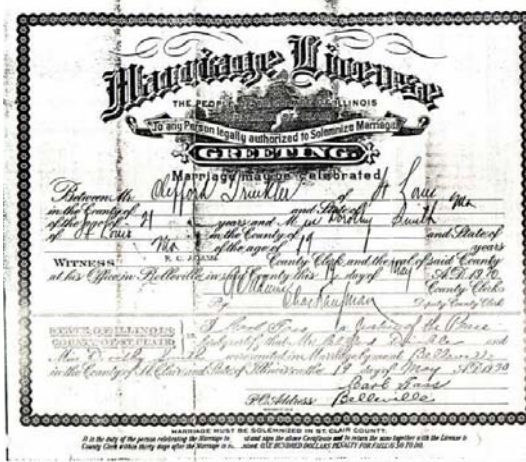 Marriage License
THE PEOPLE OF THE STATE OF ILLINOIS
To any Person legally authorized to Solemnize Marriage
GREETING:
Marriage may be Celebrated
Between Mr. Clifford of St Louis
in the County of and State of Mo
of the age of 21 years and Miss Dorothy Smith
of St Louis in the County of and State of
Mo of the age of 19 years
WITNESS County Clerk and the seal of said County
at his Office in Belleville in said County this day of May A.D. 1930.
County Clerk
By Chas Kaufman Deputy County Clerk
STATE OF ILLINOIS
COUNTY OF ST. CLAIR I, a Justice of the Peace
hereby certify that Mr. and
Miss were united in Marriage by me at Belleville
in the County of St. Clair and State of Illinois on the 19 day of May A.D. 1930
P.O. Address Belleville
MARRIAGE MUST BE SOLEMNIZED IN ST. CLAIR COUNTY.
It is the duty of the person celebrating the Marriage to and sign the above Certificate and to return the same together with the License to
County Clerk within thirty days after the Marriage is ONE HUNDRED DOLLARS PENALTY FOR FAILING SO TO DO.